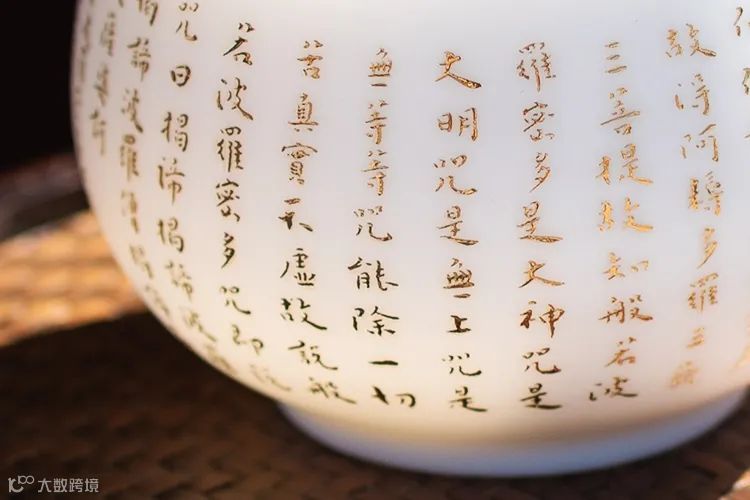 故得阿耨多羅三藐
三菩提故知般若波
羅密多是大神咒是
大明咒是無上咒是
無等等咒能除一切
苦真實不虛故說般
若波羅密多咒即說
咒曰揭諦揭諦波
揭諦波羅僧揭
薩婆訶
大数跨境